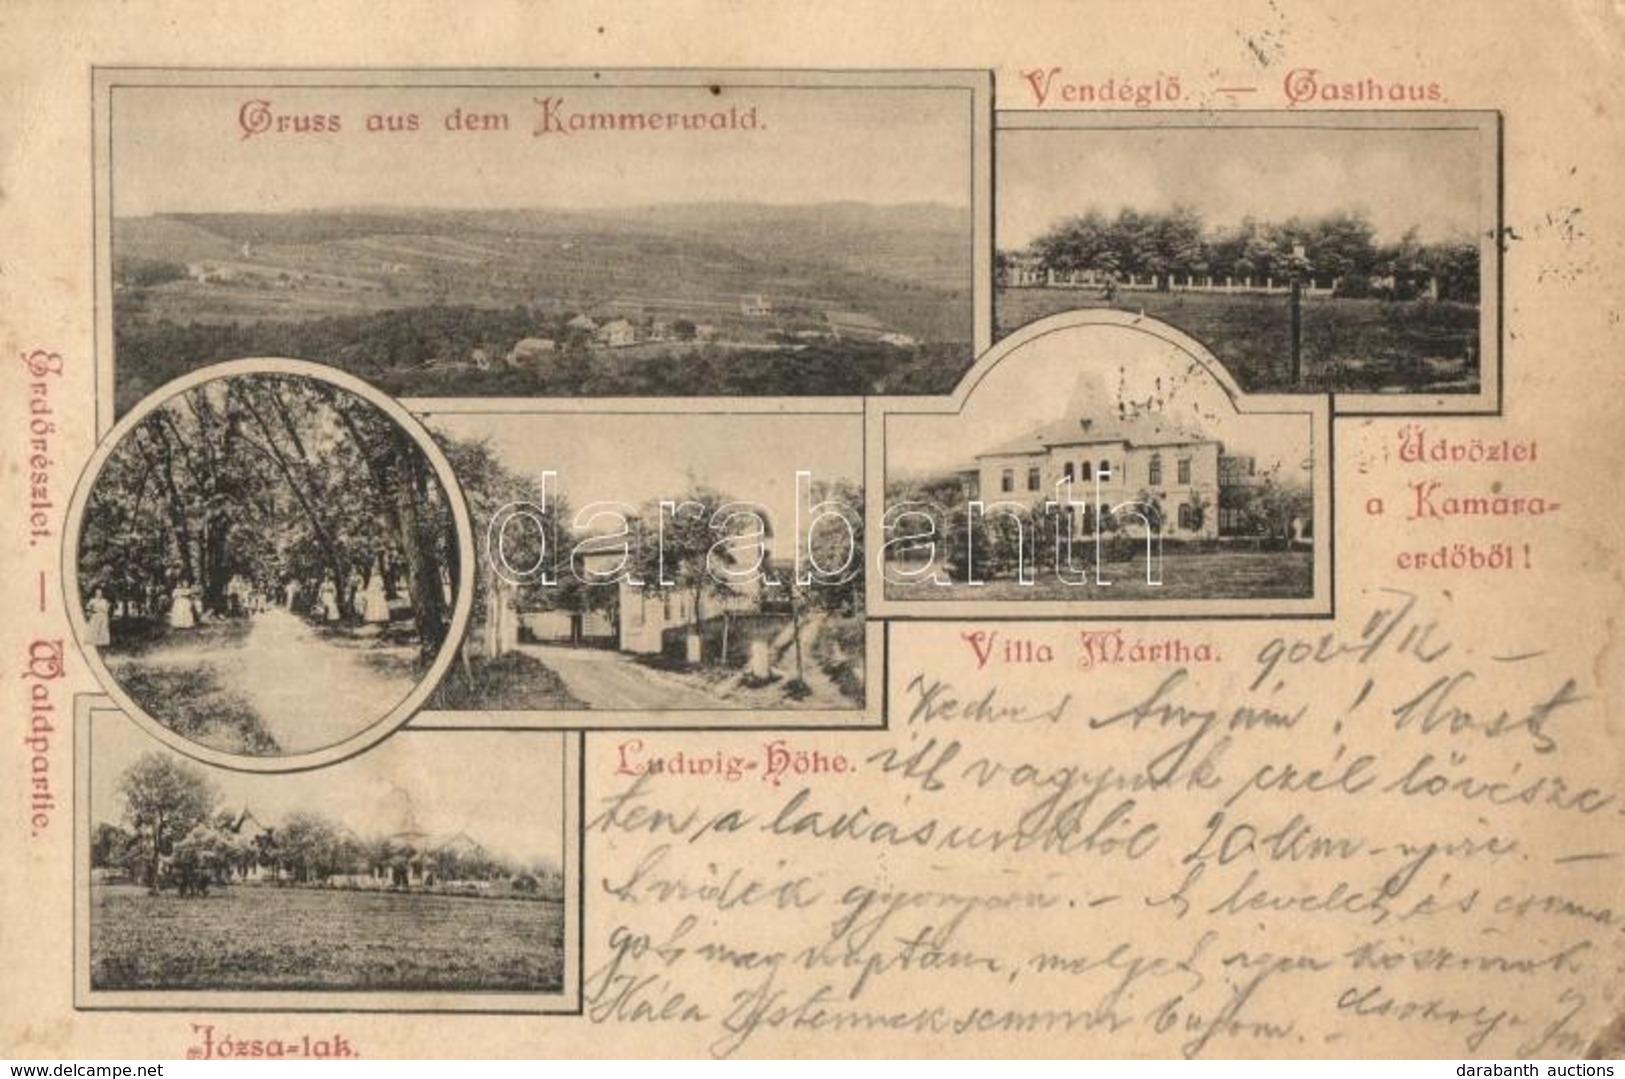 Gruss aus dem Kammerwald.
Vendéglő. — Gasthaus.
Erdőrészlet. — Waldpartie.
Üdvözlet
a Kamara-
erdőből!
Villa Mártha.
Ludwig-Höhe.
Józsa-lak.
902 V/12. –
Kedves Anyám! Most
itt vagyunk czél lövésze-
ten, a lakásunktól 20 km-nyire. –
A vidék gyönyörű. – A levelet, és csoma-
got megkaptam, melyet igen köszönök
Hála Istennek semmi bajom. –
darabanth
© darabanth auctions